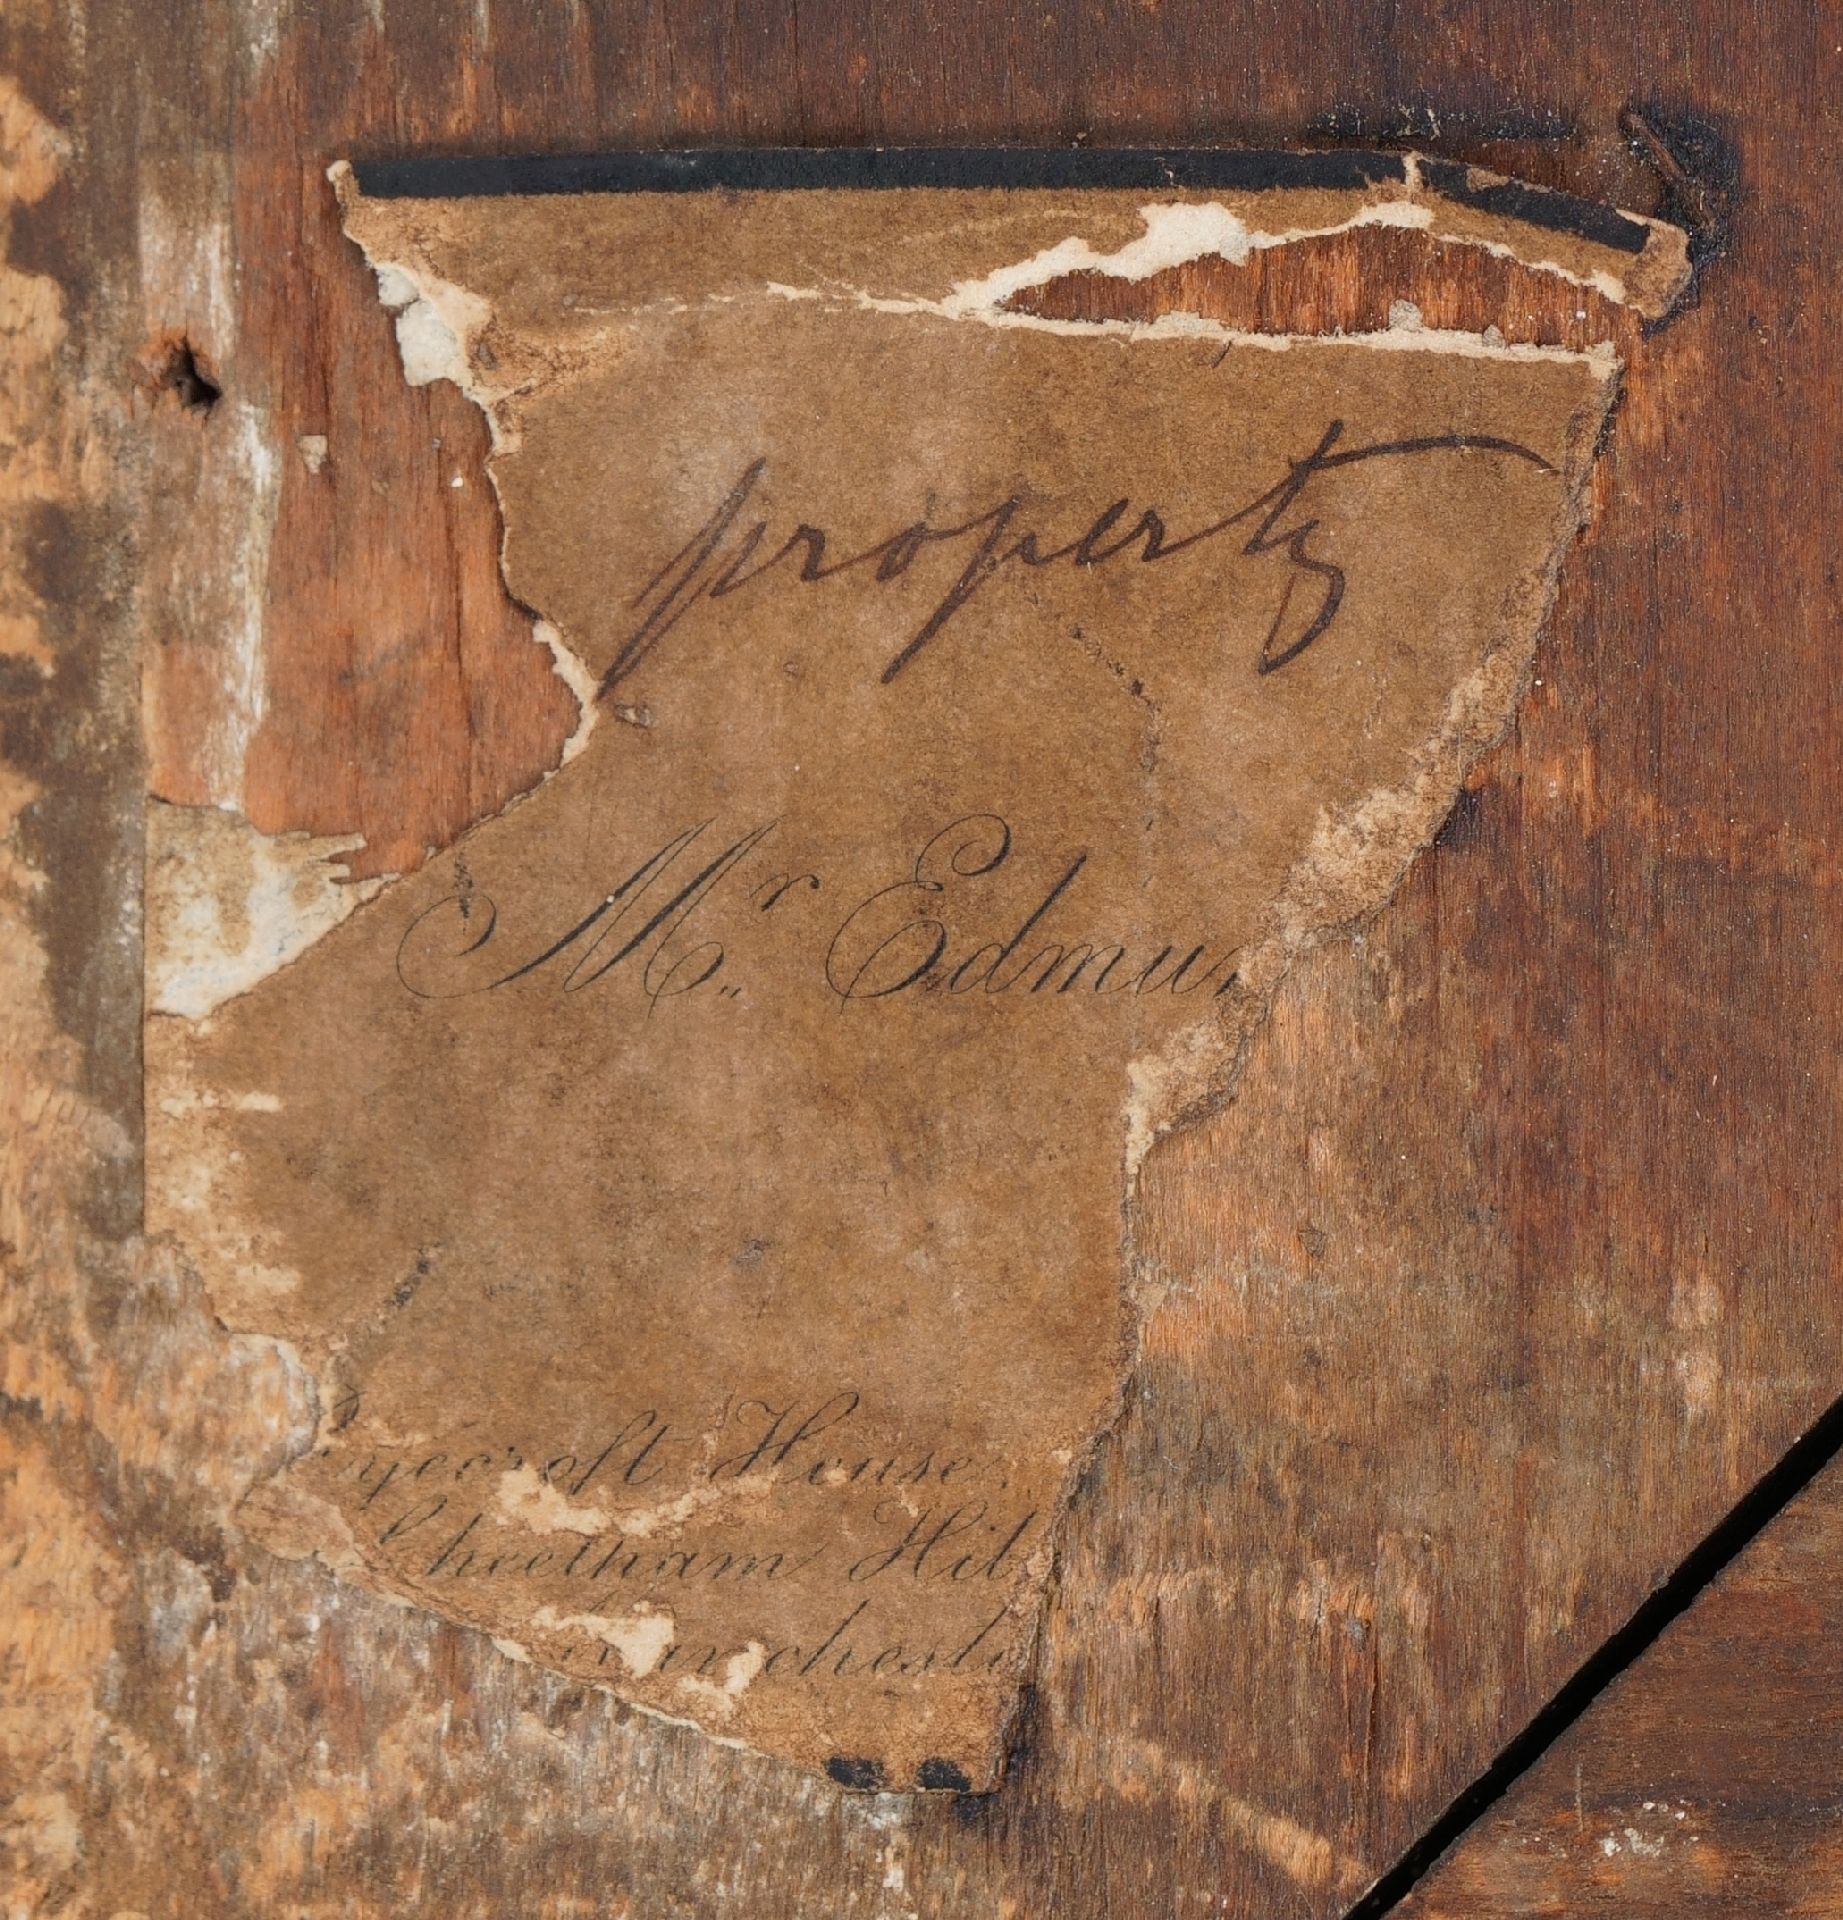 property
Mr Edmun
yecroft House
Cheetham Hil
anchest